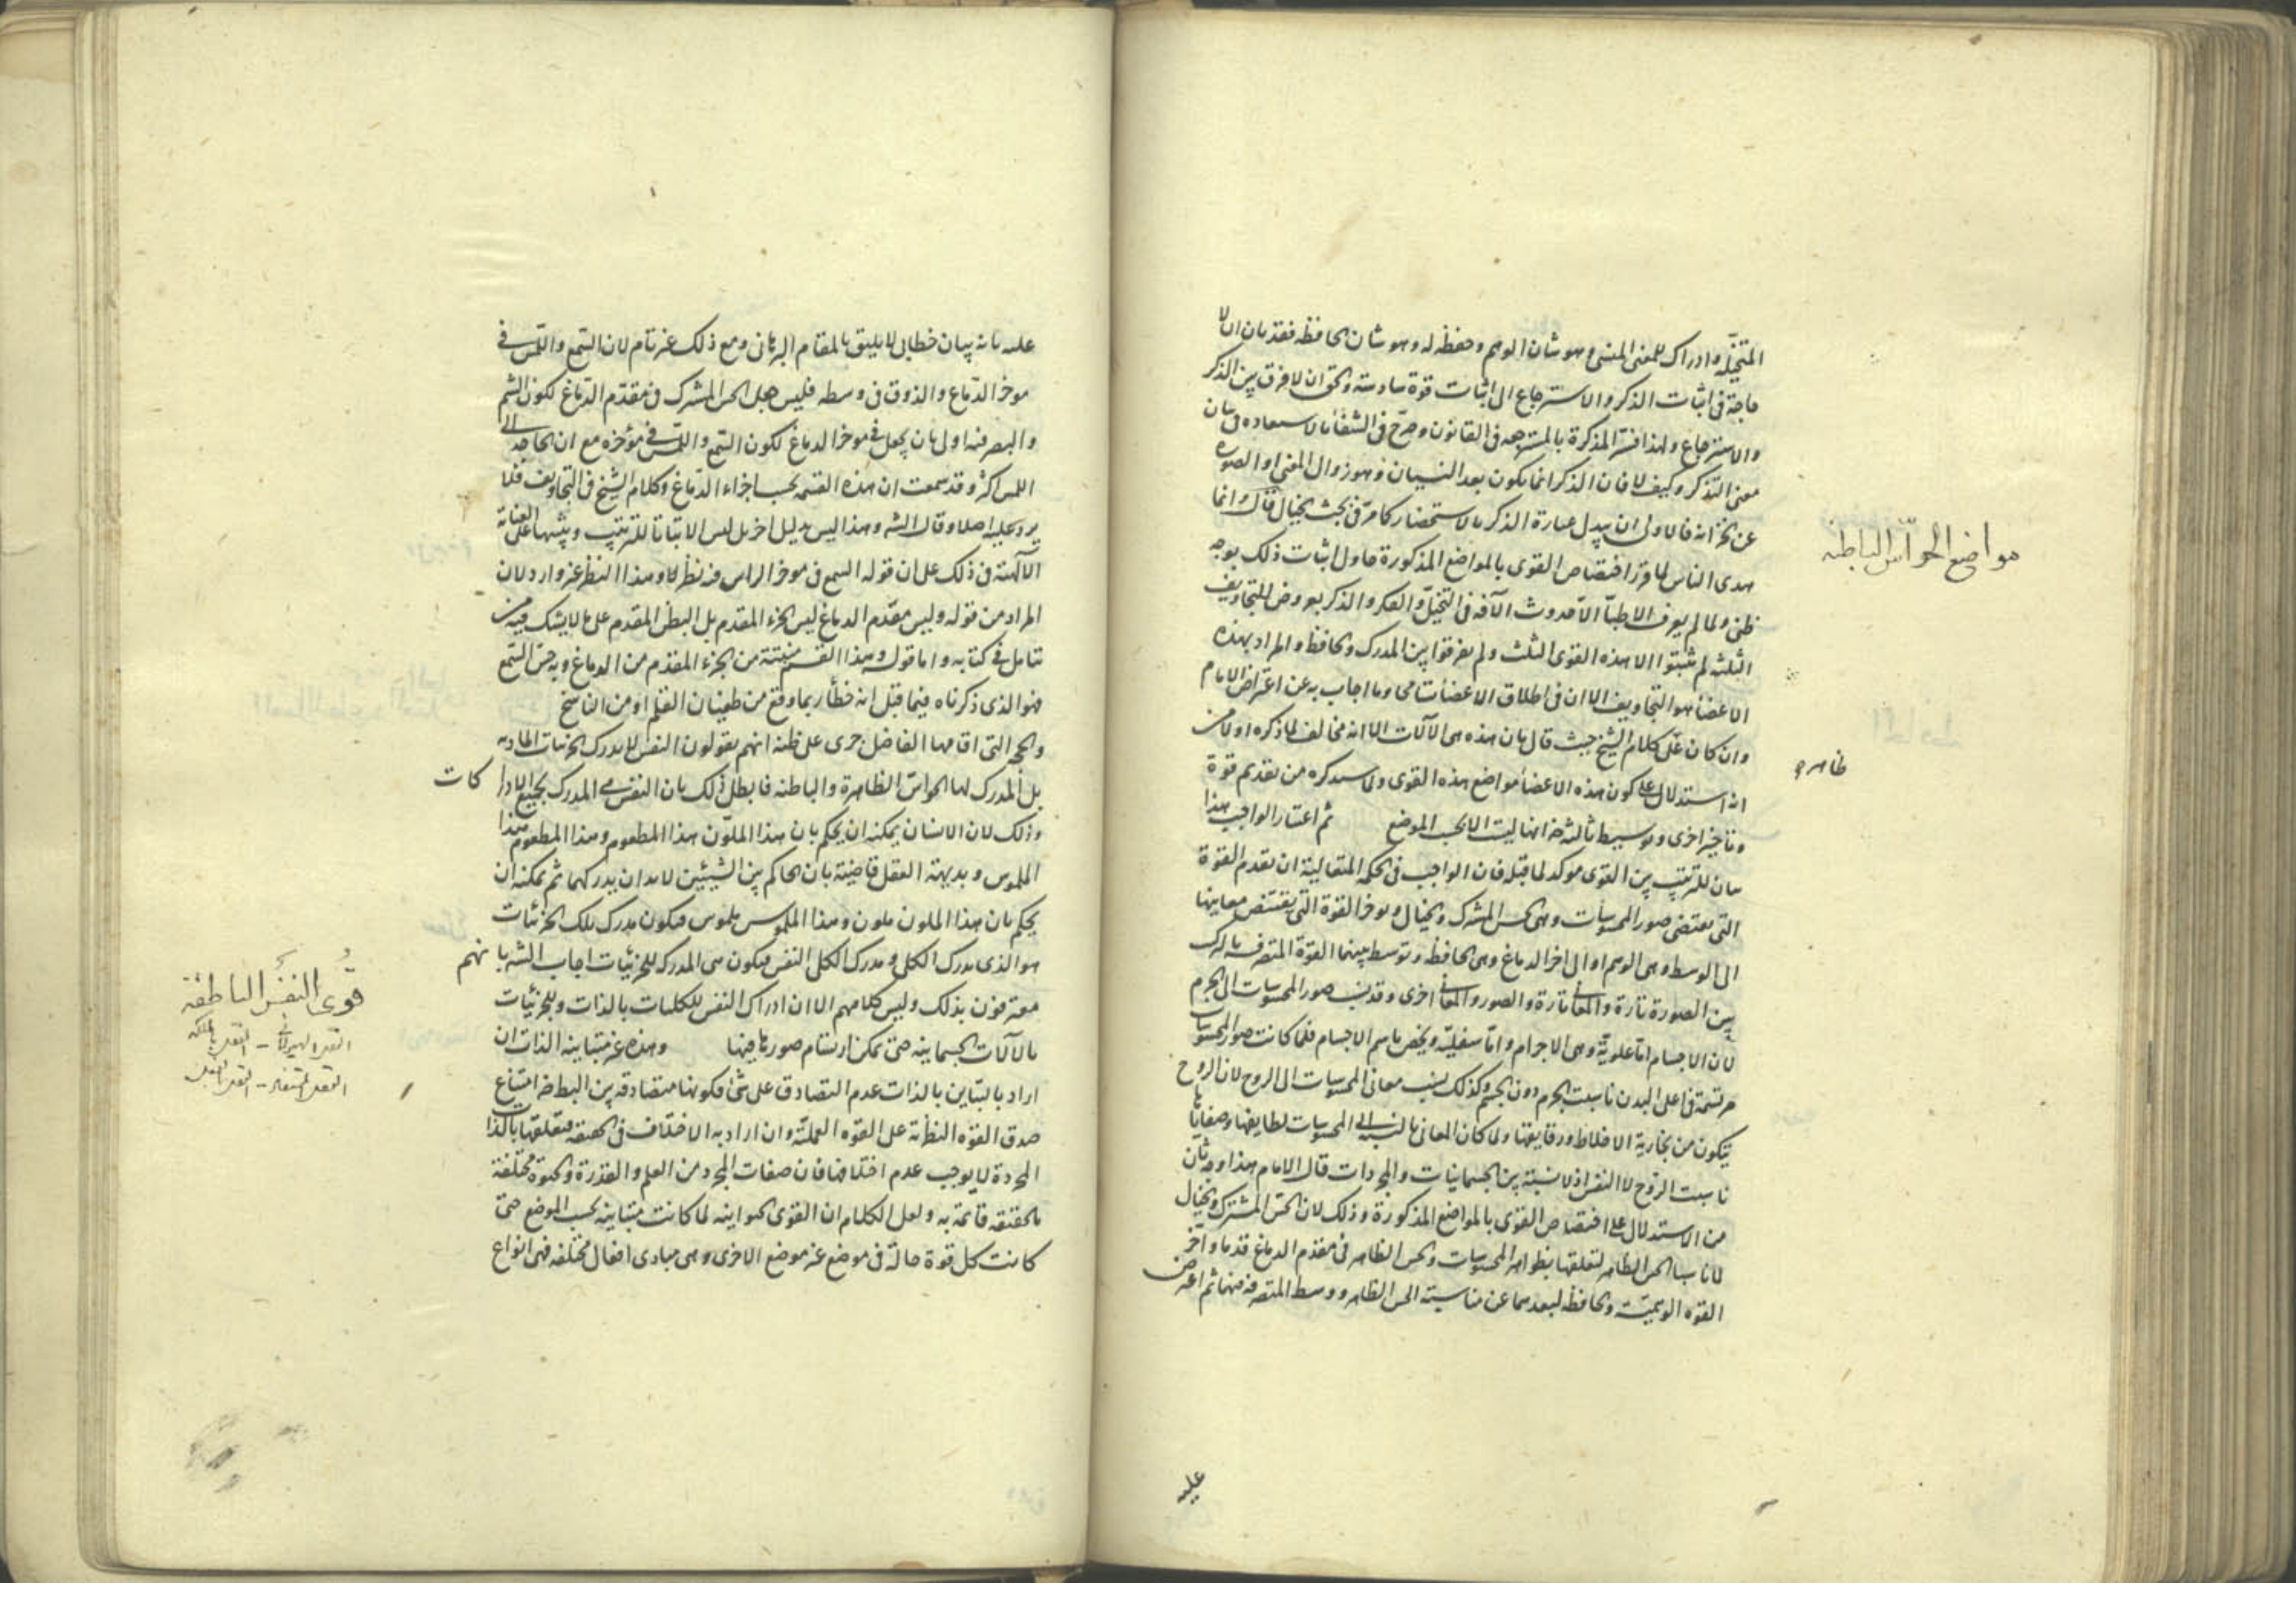 المتخيلة وادراك للمعنى المنسى وهو شان الوهم وحفظه له وهو شان الحافظة فقد بان ان لا
حاجة فى اثبات الذكر والاسترجاع الى اثبات قوة سادسة والحق ان لا فرق بين الذكر
والاسترجاع ولهذا فسر المذكرة بالمسترجعه فى القانون وصرح فى الشفأ بالاستعاده فى بيان
معنى التذكر وكيف لا فان الذكر انما يكون بعد النسيان وهو زوال المعنى او الصورة
عن الخزانه فالاولى ان يبدل عبارة الذكر بالاستحضار كما مر فى بحث الخيال قال وانما
هدى الناس لما قرر اختصاص القوى بالمواضع المذكورة حاول اثبات ذلك بوجه
ظنى ولما لم يعرف الاطبأ الا حدوث الآفه فى التخيل والفكر والذكر بعروض التجاويف
الثلثه لم يثبتوا الا هذه القوى الثلث ولم يفرقوا بين المدرك والحافظ والمراد بهذه
الاعضأ هو التجاويف الا ان فى اطلاق الاعضأ تسامحا وما اجاب به عن اعتراض الامام
وان كان على كلام الشيخ حيث قال بان هذه هى الآلات الا انه مخالف لما ذكره اولا من
انه استدلال على كون هذه الاعضأ مواضع هذه القوى ولما سيذكره من تقديم قوة
وتأخير اخرى وتوسيط ثالثه فانها ليست الا بحسب الموضع ثم اعتبار الواجب هذا
بيان للترتيب بين القوى موكد لما قبله فان الواجب فى الحكمه المتعالية ان تقدم القوة
التى تقتضى صور المحسوسات وهى الحس المشترك والخيال وتوخر القوة التى تقتنص معانيها
الى الوسط وهى الوهم او الى اخر الدماغ وهى الحافظه وتوسط بينهما القوة المتصرفه بالتركيب
بين الصورة تارة والمعانى تارة والصور والمعانى اخرى وقد نسب صور المحسوسات الى الجرم
لان الاجسام اما علوية وهى الاجرام واما سفلية ويخص باسم الاجسام فلما كانت صور المحسوسات
مرتسمة فى اعلى البدن ناسبت الجرم دون الجسم وكذلك نسب معانى المحسوسات الى الروح لان الروح
يتكون من بخارية الاخلاط ورقايقها ولما كان المعانى بالنسبة الى المحسوسات لطايفها وصفاياها
ناسبت الروح لا النفس اذ لا نسبة بين الجسمانيات والمجردات قال الامام هذا وجه ثان
من الاستدلال على اختصاص القوى بالمواضع المذكورة وذلك لان الحس المشترك والخيال
لما ناسبا الحس الظاهر لتعلقها بظواهر المحسوسات والحس الظاهر فى مقدم الدماغ قدما واخر
القوه الوهمية والحافظه لبعدهما عن مناسبة الحس الظاهر ووسط المتصرفه منهما ثم اعترض
مواضع الحواس الباطنه
ظاهره
عليه
عليه بانه بيان خطابى لا يليق بالمقام البرهانى ومع ذلك غير تام لان السمع واللمس فى
موخر الدماغ والذوق فى وسطه فليس جعل الحس المشترك فى مقدم الدماغ لكون الشم
والبصر فيه اولى بان يجعل فى موخر الدماغ لكون السمع واللمس فى مؤخره مع ان الحاجة الى
اللمس اكثر وقد سمعت ان هذه القسمه بحسب اجزاء الدماغ وكلام الشيخ فى التجاويف فلا
يرد عليه اصلا وقال الشه وهذا ليس بدليل اخر بل ليس الا بيانا للترتيب وينبها على العناية
الآلهية فى ذلك على ان قوله السمع فى موخر الراس فيه نظر وهذا النظر غير وارد لان
المراد من قوله وليس مقدم الدماغ ليس الجزء المقدم بل البطن المقدم على ما لا يشك فيه من
تتامل فى كتابه واما قوله وهذا القسم منبته من الجزء المقدم من الدماغ وبه حس السمع
فهو الذى ذكرناه فيما قبل انه خطأ ربما وقع من طغيان القلم او من الناسخ
والحجه التى اقامها الفاضل جرى على ظنه انهم يقولون النفس لا يدرك الجزئيات الماديه
بل المدرك لها الحواس الظاهرة والباطنه فابطل ذلك بان النفس هى المدرك بجميع الادراكات
وذلك لان الانسان يمكنه ان يحكم بان هذا الملون هذا المطعوم وهذا المطعوم هذا
الملموس وبديهة العقل قاضية بان الحاكم بين الشيئين لابد ان يدركهما ثم يمكنه ان
يحكم بان هذا الملون ملون وهذا الملموس ملموس فيكون مدرك تلك الجزئيات
هو الذى يدرك الكلى ومدرك الكلى النفس فيكون هى المدركه للجزئيات اجاب الشه بانهم
معترفون بذلك وليس كلامهم الا ان ادراك النفس للكليات بالذات وللجزئيات
بالآلات الجسمانيه حتى يمكن ارتسام صورها فيها وهذه غير متباينه الذات ان
اراد بالتباين بالذات عدم التصادق على شئ فكونها متصادقه بين البطلان امتناع
صدق القوه النظريه على القوه العمليه وان اراد به الاختلاف فى الحقيقه فتعلقها بالذات
المجردة لا يوجب عدم اختلافها فان صفات المجرد من العلم والقدرة والحيوة مختلفة
بالحقيقه قائمة به ولعل الكلام ان القوى الحيوانيه لما كانت متباينه بحسب الموضع حتى
كانت كل قوة حالة فى موضع غير موضع الاخرى وهى مبادى افعال مختلفه فهى انواع
قوى النفس الناطقة
العقل الهيولانى - العقل بالملكه
العقل المستفاد - العقل بالفعل